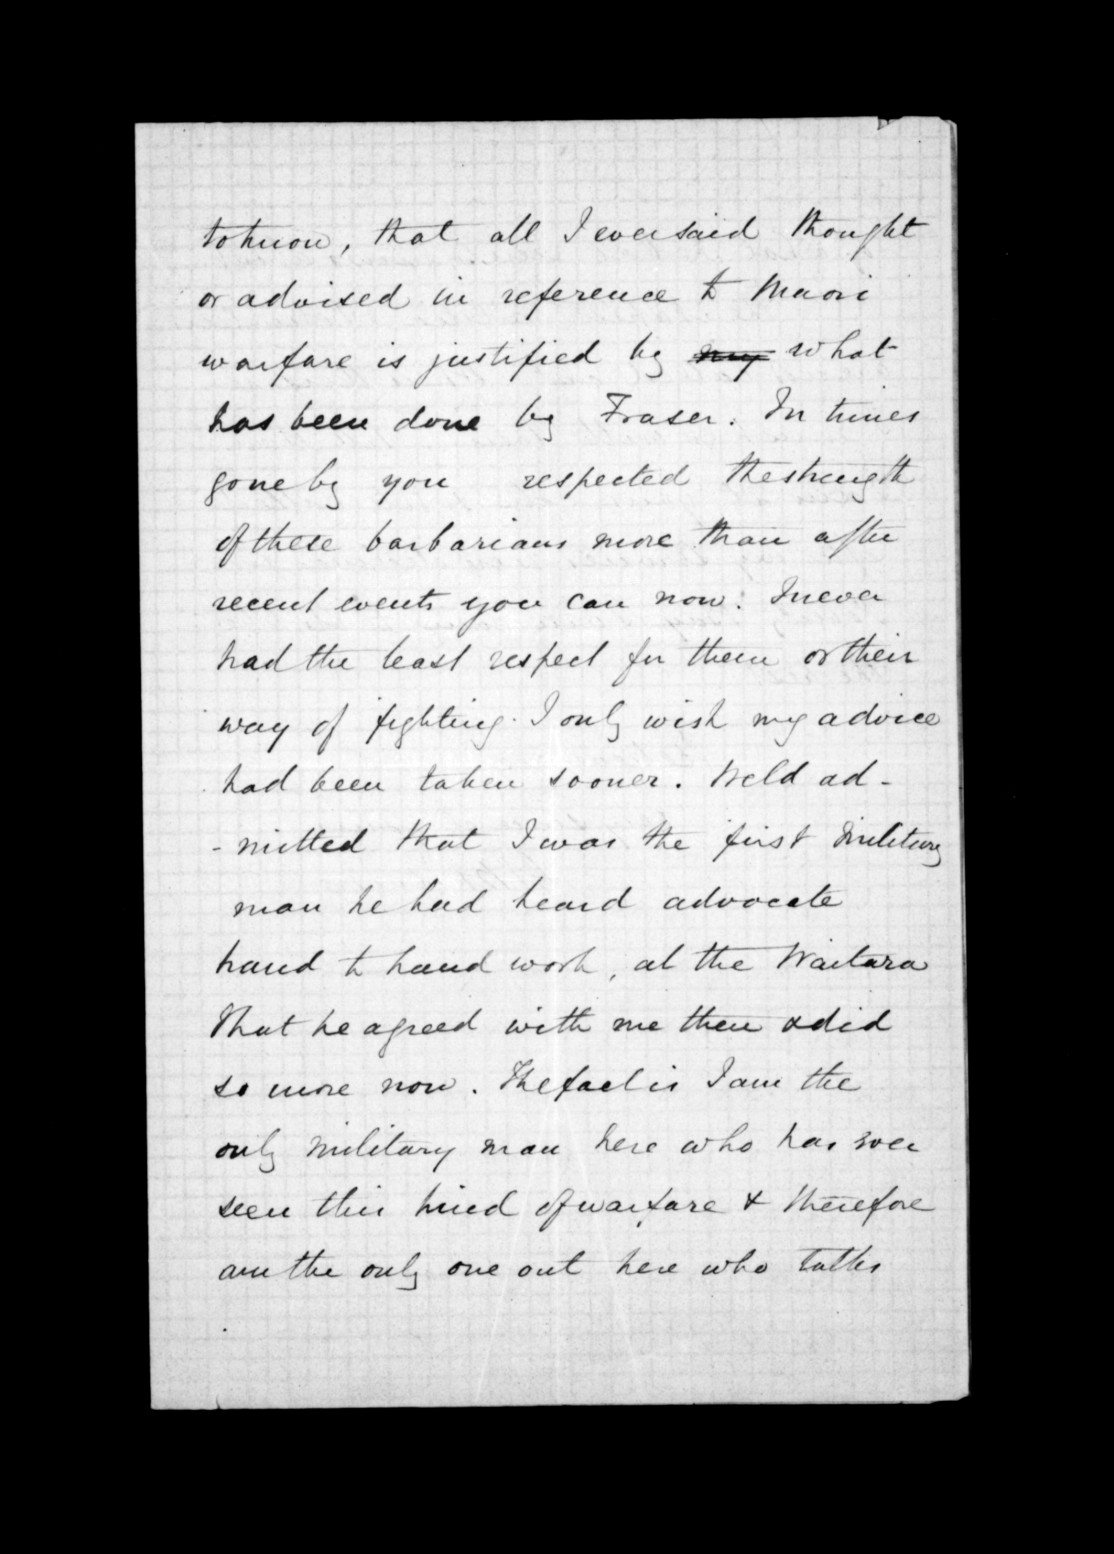 to know, that all I ever said thought
or advised in reference to Maori
warfare is justified by my what
has been done by Fraser. In times
gone by you respected the strength
of these barbarians more than after
recent events you can now. I never
had the least respect for them or their
way of fighting. I only wish my advice
had been taken sooner. Weld ad-
-mitted that I was the first military
man he had heard advocate
hand to hand work, at the Waitara
that he agreed with me then & did
so more now. The fact is I am the
only military man here who has ever
seen this kind of warfare & therefore
am the only one out here who talks